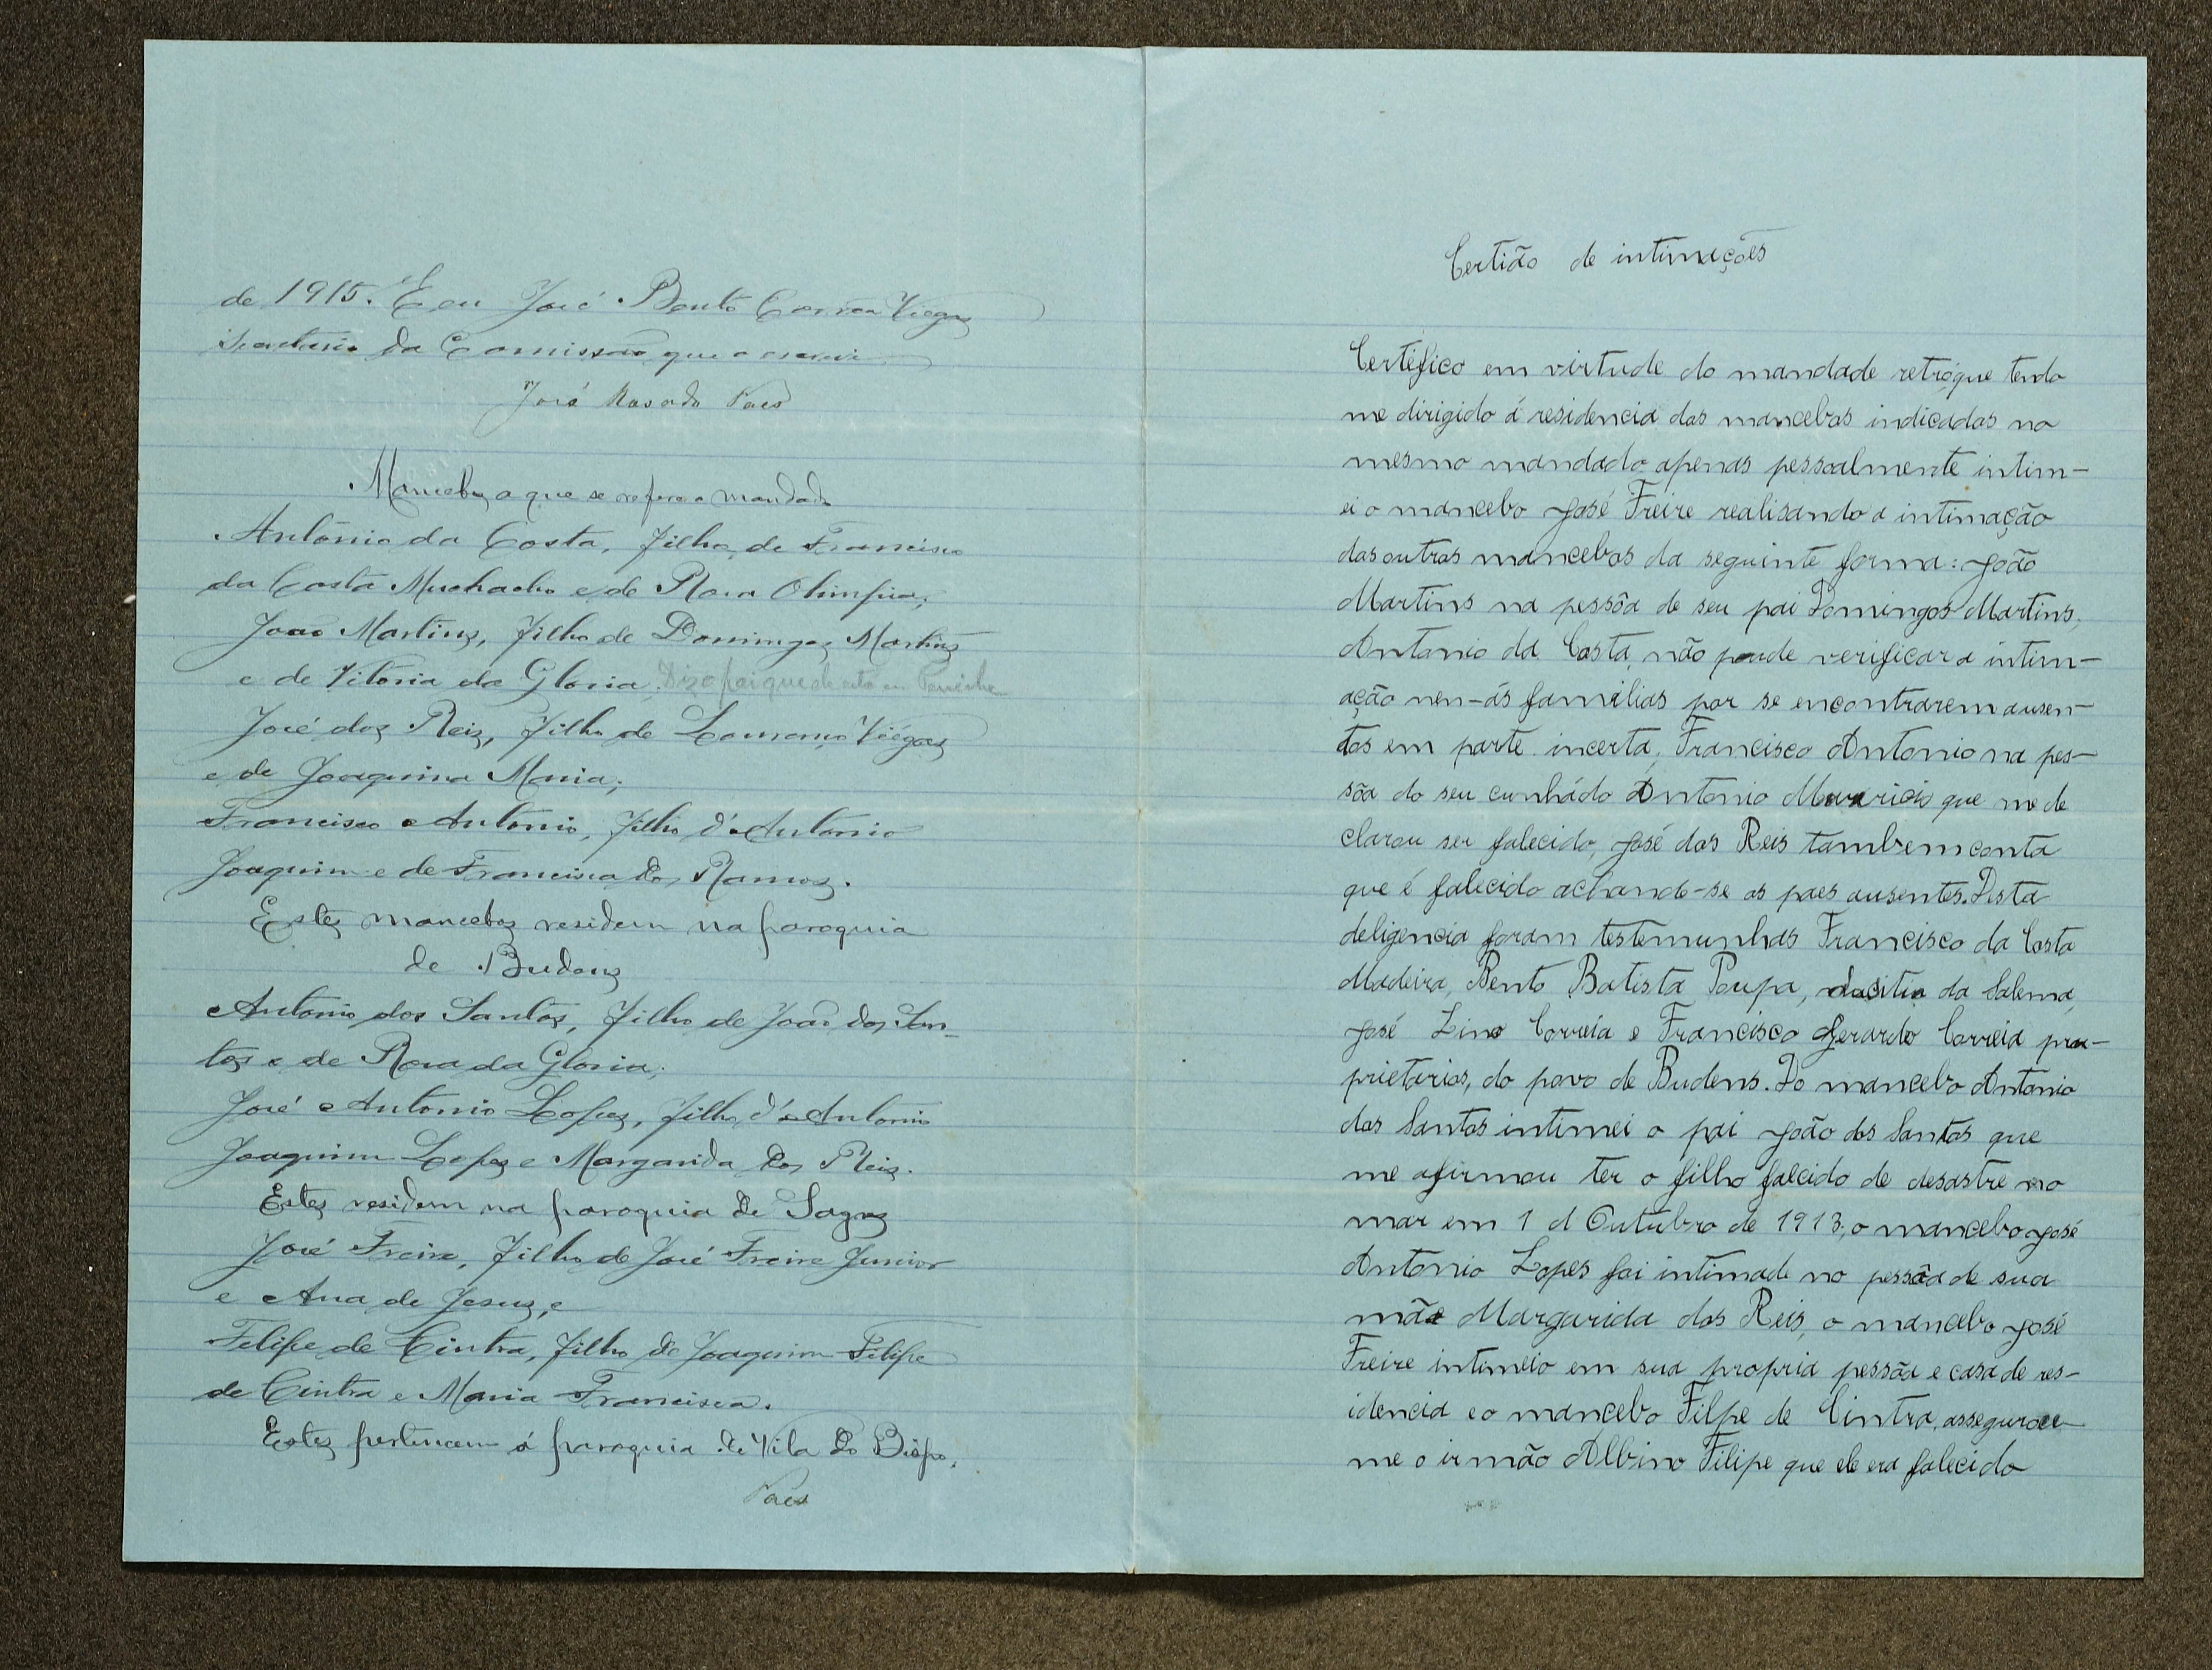 de 1915. E eu José Bento Correa Viegas
Secretario da Comissão que o escrevi
José Rosado Paes
Mancebos a que se refere o mandado
Antonio da Costa, filho de Francisco
da Costa Muchacho e de Rosa Olimpia;
João Martins, filho de Domingos Martins
e de Vitoria da Gloria. Diz o pai que
José dos Reis, filho de Lourenço Viégas
e de Joaquina Maria;
Francisco Antonio, filho d'Antonio
Joaquim e de Francisca dos Ramos.
Estes mancebos residem na paroquia
de Budens
Antonio dos Santos, filho de João dos San-
tos e de Rosa da Gloria;
José Antonio Lopes, filho d'Antonio
Joaquim Lopes e Margarida dos Reis.
Estes residem na paroquia de Sagres
José Freire, filho de José Freire Junior
e Ana de Jesus, e
Felipe de Cintra, filho de Joaquim Felipe
de Cintra e Maria Francisca.
Estes pertencem á paroquia de Vila do Bispo.
Paes
Certidão de intimações
Certefico em virtude do mandade retró que tendo
me dirigido á residencia dos mancebos indicados no
mesmo mandado apenas pessoalmente intim-
ei o mancebo José Freire realisando a intimação
dos outros mancebos da seguinte forma: João
Martins na pessôa de seu pai Domingos Martins,
Antonio da Costa não poude verificar a intim-
ação nen-ás familias por se encontrarem ausen-
tos em parte incerta, Francisco Antonio na pes-
sôa do seu cunhádo Antonio que me de
clarou ser falecido, José dos Reis tambem conta
que é falecido achando-se os paes ausentes. Desta
deligencia foram testemunhas Francisco da Costa
Madeira, Bento Batista Poupa, do sitio da Salema,
José Lino Correia e Francisco Gerardo Correia pro-
prietarios, do povo de Budens. Do mancebo Antonio
dos Santos intimei o pai João dos Santos que
me afirmou ter o filho falcido de desastre no
mar em 1 d Outubro de 1913, o mancebo José
Antonio Lopes foi intimado no pessôa de sua
mãe Margarida dos Reis, o mancebo José
Freire intimeio em sua propria pessôa e casa de res-
idencia e o mancebo Filpe de Cintra, assegurou-
me o irmão Albino Filipe que ele era falecido